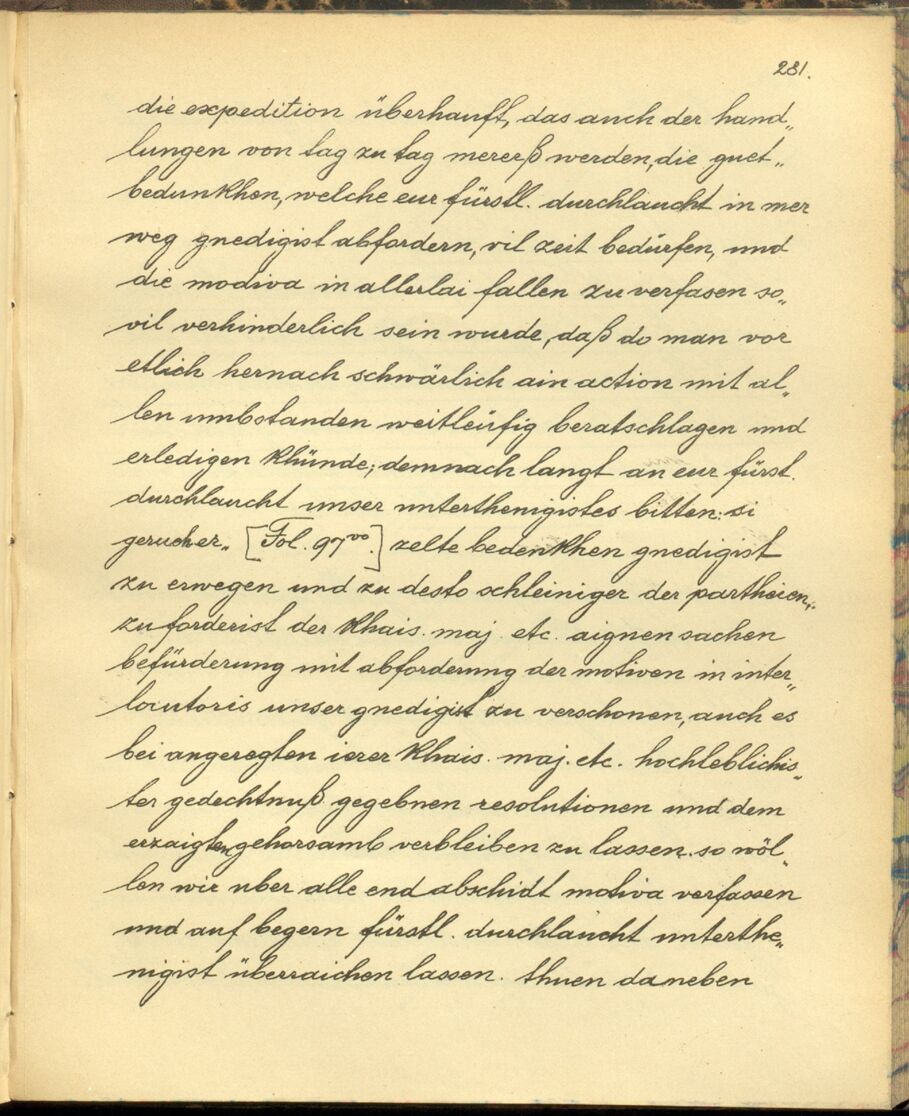 281.
die expedition überhauft, das auch der hand„
lungen von tag zu tag mererß werden, die guet„
bedunkhen, welche eur fürstl. durchlaucht in mer
weg gnedigist abfordern, vil zeit bedürfen, und
die modiva in allerlai fallen zu verfasen so„
vil verhinderlich sein wurde, daß do man vor
etlich hernach schwärlich ain action mit al„
len umbstanden weitleüfig beratschlagen und
erledigen khünde; demnach langt an eur fürst.
durchlaucht unser unterthenigistes bitten: si
gerucher„ [Fol. 97vo.] zelte bedenkhen gnedigist
zu erwegen und zu desto schleiniger der partheien,
zuforderist der khais. maj. etc. aignen sachen
befürderung mit abforderung der motiven in inter„
locutoris unser gnedigist zu verschonen, auch es
bei angeregten ierer khais. maj. etc. hochleblichis„
ter gedechtnuß gegebnen resolutionen und dem
erzaigten gehorsamb verbleiben zu lassen. so wöl„
len wir uber alle end abschidt motiva verfassen
und auf begern fürstl. durchlaucht unterthe„
nigist überraichen lassen. thuen daneben